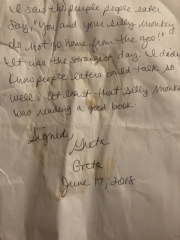 I saw the purple people eater
say, "You and your silly monkey
do not go home from the zoo!"
It was the strangest day. I didn't
know people eaters could talk so
well. At least that silly monkey
was reading a good book.
Signed,
Greta
Greta
June 17, 2018